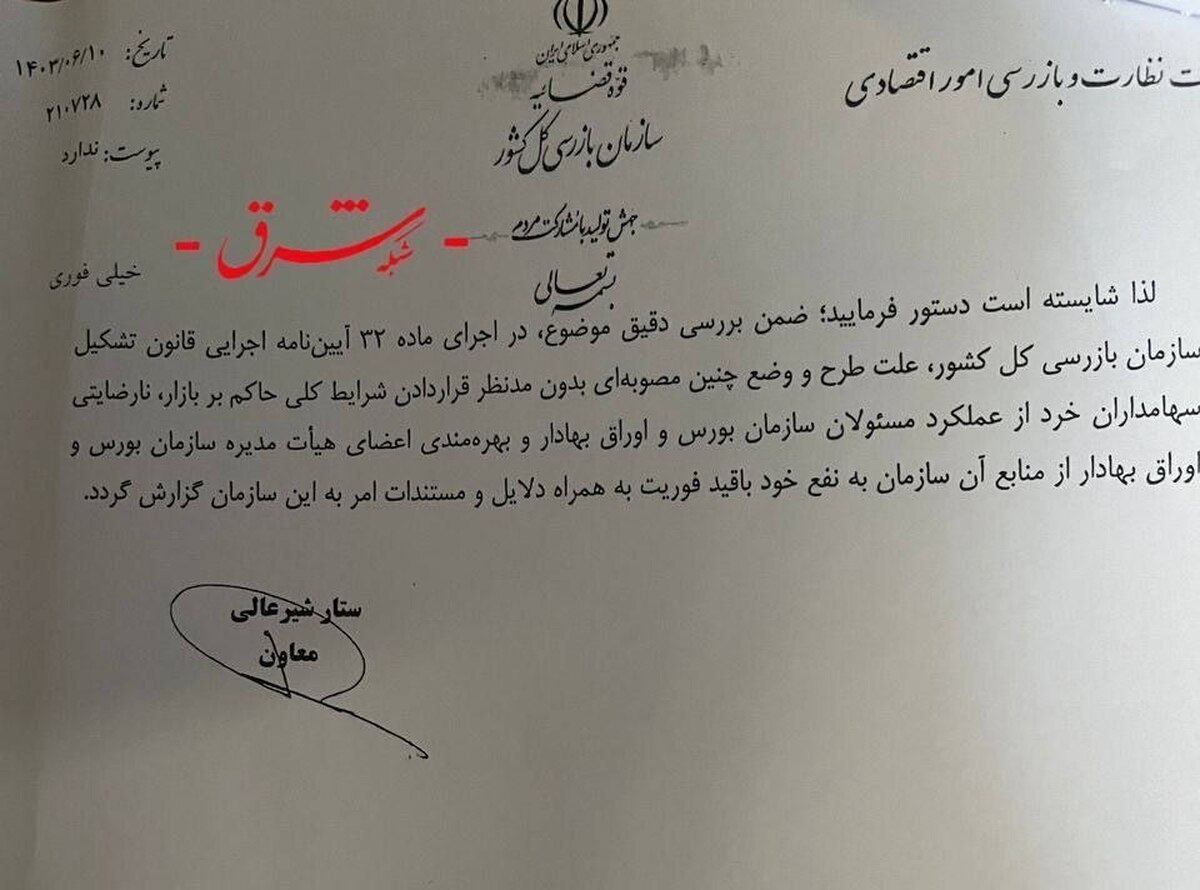 جمهوری اسلامی ایران
قوه قضائیه
سازمان بازرسی کل کشور
ت نظارت و بازرسی امور اقتصادی
تاریخ: ۱۴۰۳/۰۶/۱۰
شماره: ۲۱۰۷۲۸
پیوست: ندارد
جهش تولید با مشارکت مردم
- شبکه شرق -
بسمه تعالی
خیلی فوری
لذا شایسته است دستور فرمایید؛ ضمن بررسی دقیق موضوع، در اجرای ماده ۳۲ آیین‌نامه اجرایی قانون تشکیل
سازمان بازرسی کل کشور، علت طرح و وضع چنین مصوبه‌ای بدون مدنظر قراردادن شرایط کلی حاکم بر بازار، نارضایتی
سهامداران خرد از عملکرد مسئولان سازمان بورس و اوراق بهادار و بهره‌مندی اعضای هیأت مدیره سازمان بورس و
اوراق بهادار از منابع آن سازمان به نفع خود باقید فوریت به همراه دلایل و مستندات امر به این سازمان گزارش گردد.
ستار شیرعالی
معاون